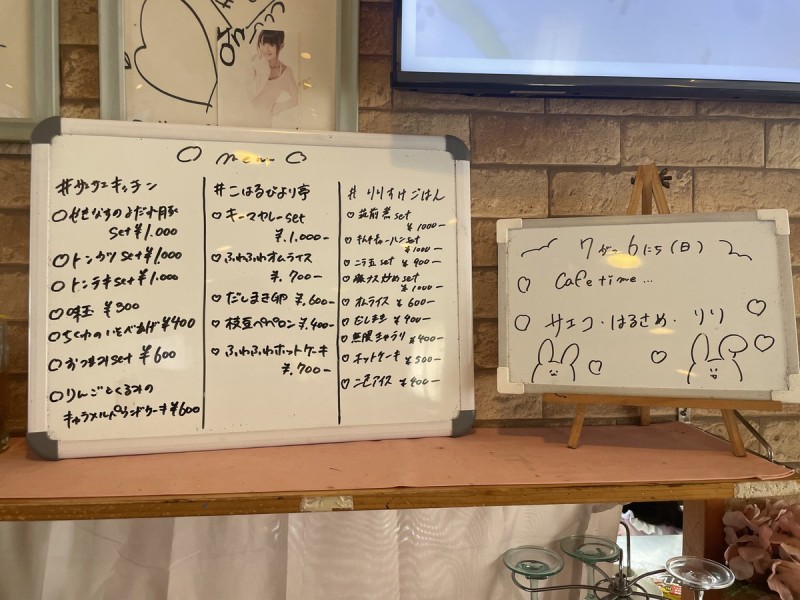 menu
#サエコキッチン
set ¥1.000
トンカツ set ¥1000
トンテキ set ¥1.000
味玉 ¥300
ちくわのいそべあげ ¥400
おつまみ set ¥600
りんごとくるみの
キャラメルパウンドケーキ ¥600
#こはるびより亭
キーマカレー set
¥.1,000-
ふわふわオムライス
¥.700-
だしまき卵 ¥.600-
枝豆ペペロン ¥.400-
ふわふわホットケーキ
¥.700-
# りりすけごはん
筑前煮 set
¥1000-
キムチチャーハン set
¥1000-
ニラ玉 set ¥900-
豚ナス炒め set
¥1000-
オムライス ¥600-
だしまき ¥400-
無限キャラリ ¥400-
ホットケーキ ¥500-
二色アイス ¥400-
7がつ6にち(日)
Cafe time...
サエコ・はるさめ・りり